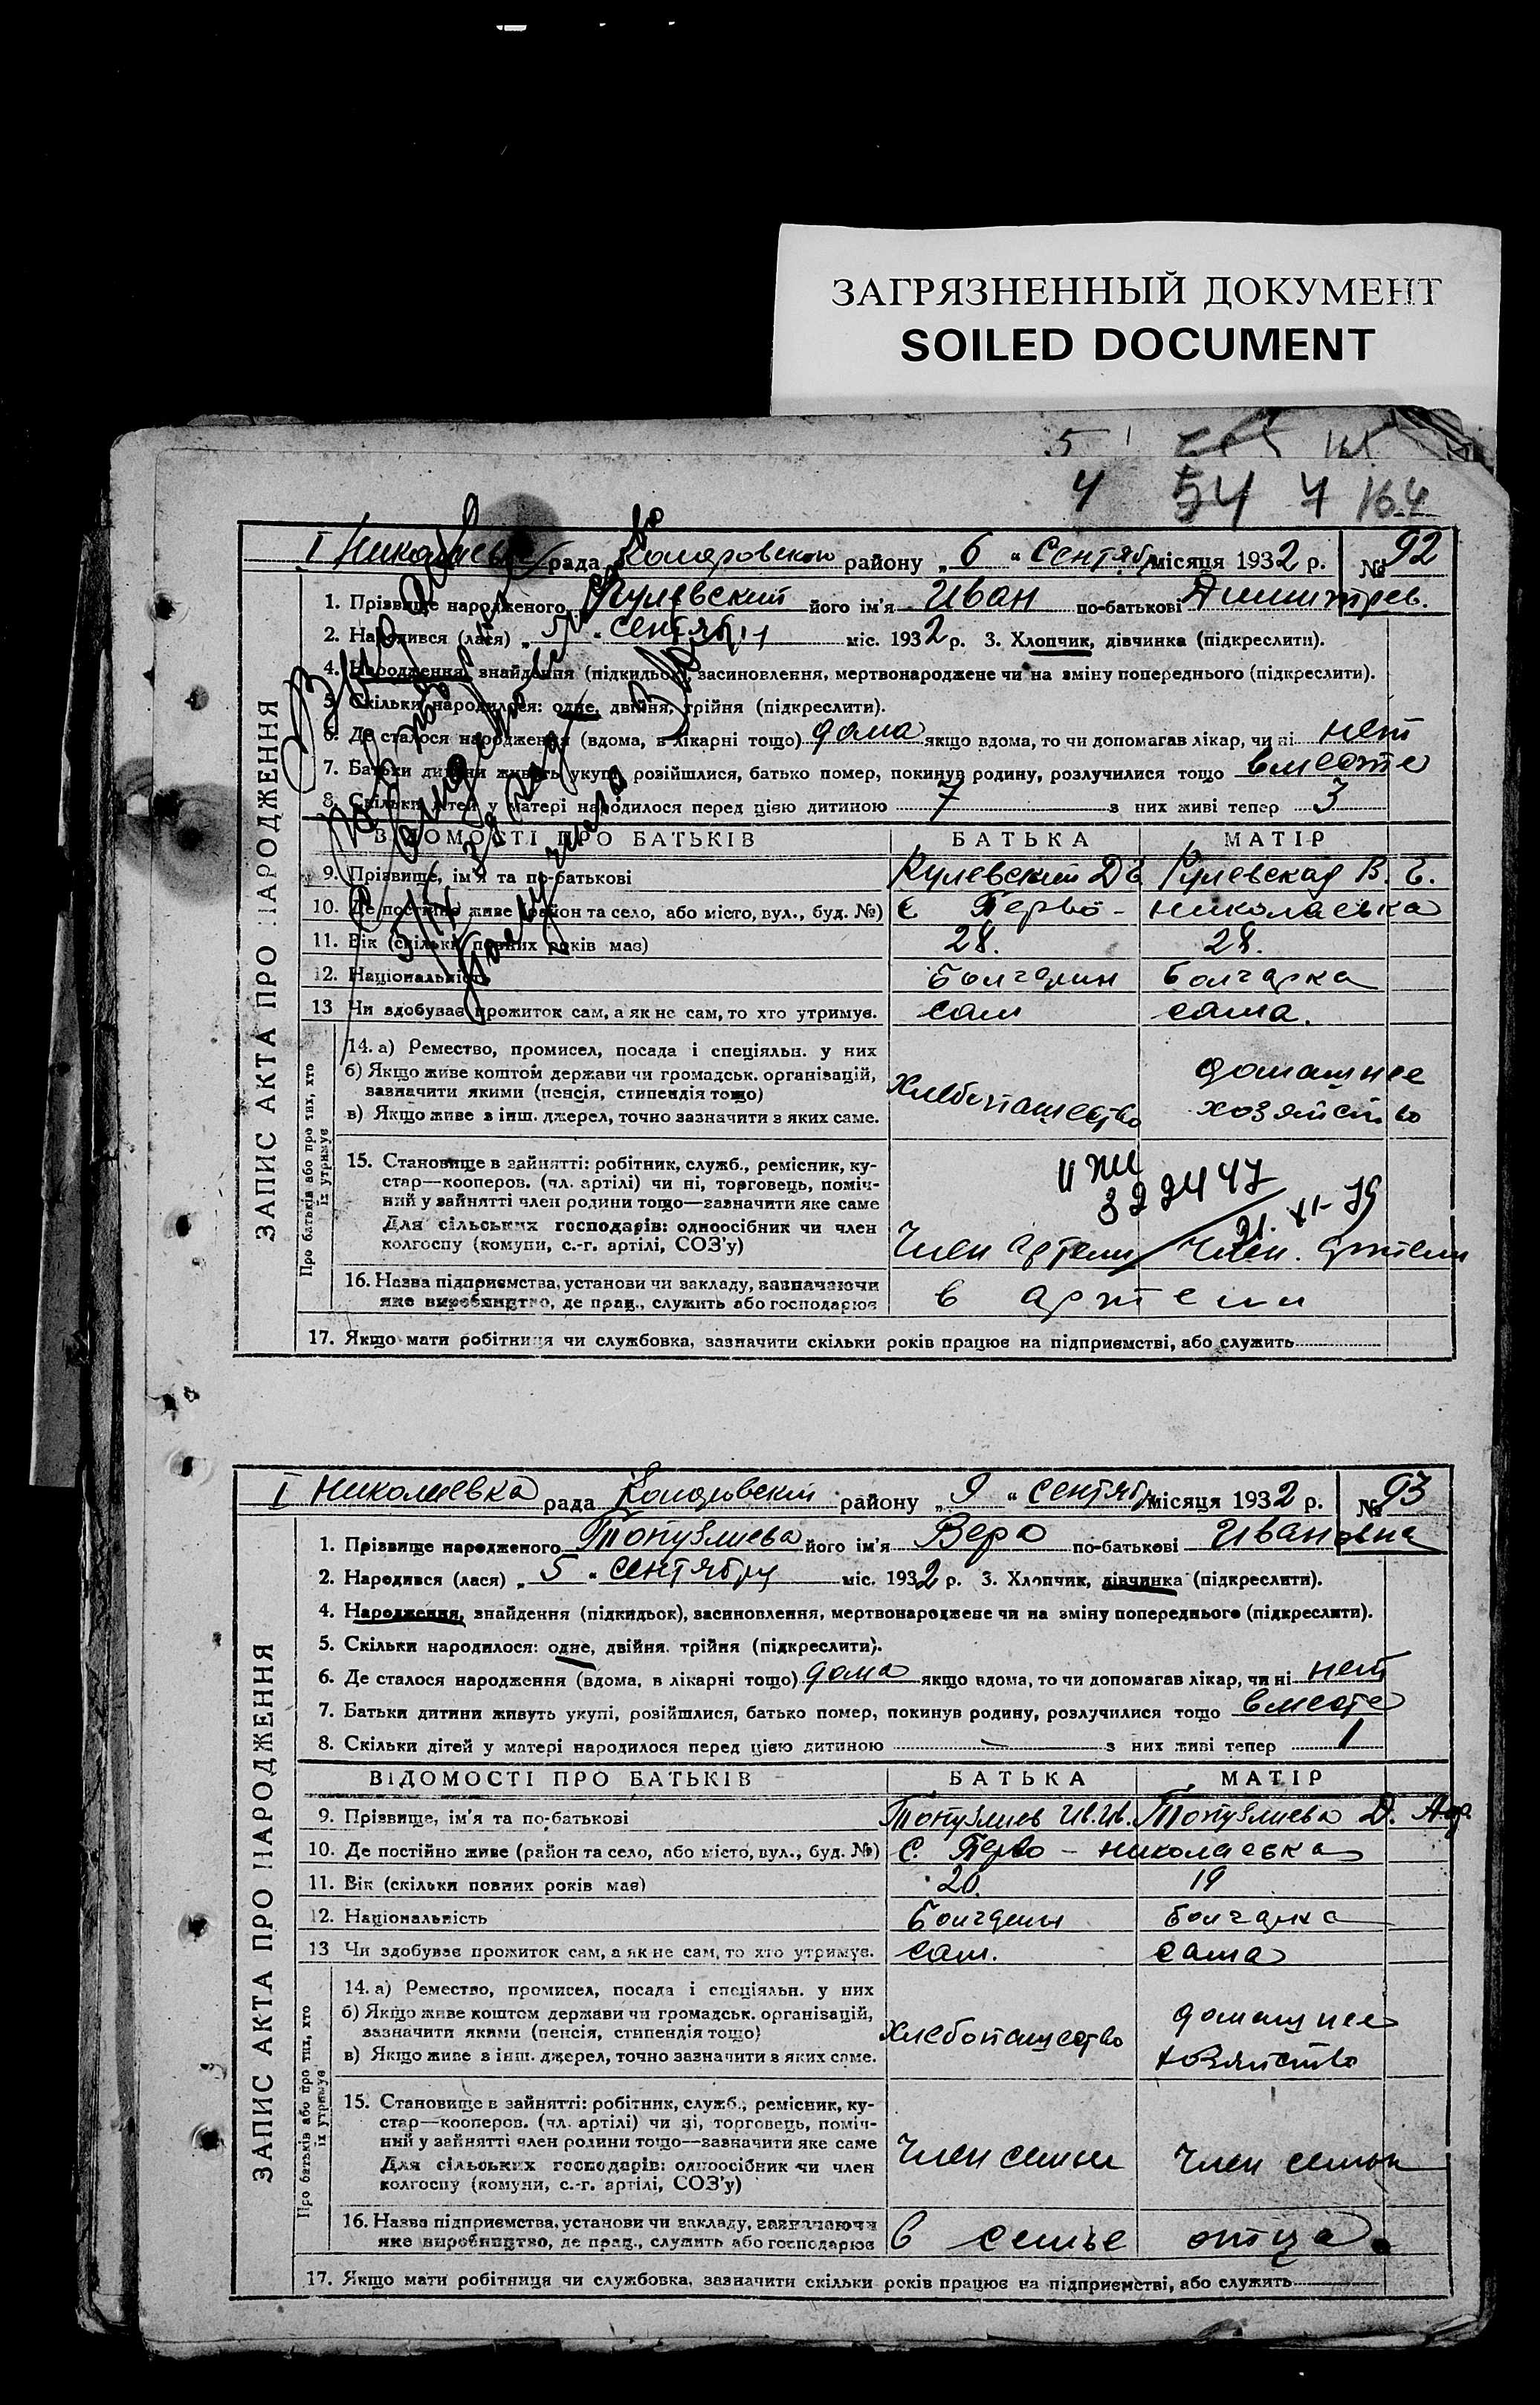 ЗАГРЯЗНЕННЫЙ ДОКУМЕНТ
SOILED DOCUMENT
4 54 4 164
ЗАПИС АКТА ПРО НАРОДЖЕННЯ
I рада району „6“ Сентября місяця 1932 р. № 92
1. Прізвище народженого Кулевский його ім'я Иван по-батькові Димитрев.
2. Народився (лася) „5“ сентября міс. 1932 р. 3. Хлопчик, дівчинка (підкреслити).
4. Народження, знайдення (підкидьок), засиновлення, мертвонароджене чи на зміну попереднього (підкреслити).
5. Скільки народилося: одне, двійня, трійня (підкреслити).
6. Де сталося народження (вдома, в лікарні тощо) дома якщо вдома, то чи допомагав лікар, чи ні нет
7. Батьки дитини живуть укупі, розійшлися, батько помер, покинув родину, розлучилися тощо вместе
8. Скільки дітей у матері народилося перед цією дитиною 7 з них живі тепер 3
ВІДОМОСТІ ПРО БАТЬКІВ БАТЬКА МАТІР
9. Прізвище, ім'я та по-батькові Кулевский Кулевская В.
10. Де постійно живе (район та село, або місто, вул., буд. №) с Перво - николаевка
11. Вік (скільки повних років має) 28. 28.
12. Національність Болгарин Болгарка
13 Чи здобуває прожиток сам, а як не сам, то хто утримує. сам сама.
Про батьків або про тих, хто їх утримує
14. а) Ремество, промисел, посада і спеціяльн. у них
б) Якщо живе коштом держави чи громадськ. організацій, зазначити якими (пенсія, стипендія тощо)
в) Якщо живе з інш. джерел, точно зазначити з яких саме.
Хлебопашество домашнее хозяйство
15. Становище в зайнятті: робітник, служб., ремісник, ку-
стар—кооперов. (чл. артілі) чи ні, торговець, поміч-
ний у зайнятті член родини тощо—зазначити яке саме
Для сільських господарів: одноосібник чи член
колгоспу (комуни, с.-г. артілі, СОЗ'у)
322447
21. XI-79
Член артели Член. артели
16. Назва підприємства, установи чи закладу, зазначаючи
яке виробництво, де прац., служить або господарює
в артели
17. Якщо мати робітниця чи службовка, зазначити скільки років працює на підприємстві, або служить
ЗАПИС АКТА ПРО НАРОДЖЕННЯ
I Николаевка рада району „9“ сентября місяця 1932 р. № 93
1. Прізвище народженого Топузлиева його ім'я Вера по-батькові Ивановна
2. Народився (лася) „5“ сентября міс. 1932 р. 3. Хлопчик, дівчинка (підкреслити).
4. Народження, знайдення (підкидьок), засиновлення, мертвонароджене чи на зміну попереднього (підкреслити).
5. Скільки народилося: одне, двійня. трійня (підкреслити).
6. Де сталося народження (вдома, в лікарні тощо) дома якщо вдома, то чи допомагав лікар, чи ні нет
7. Батьки дитини живуть укупі, розійшлися, батько помер, покинув родину, розлучилися тощо вместе
8. Скільки дітей у матері народилося перед цією дитиною — з них живі тепер 1
ВІДОМОСТІ ПРО БАТЬКІВ БАТЬКА МАТІР
9. Прізвище, ім'я та по-батькові Топузлиев Ив.Ив. Топузлиева Д.
10. Де постійно живе (район та село, або місто, вул., буд. №) С. Перво - николаевка
11. Вік (скільки повних років має) 20. 19
12. Національність Болгарин Болгарка
13 Чи здобуває прожиток сам, а як не сам, то хто утримує. сам. сама
Про батьків або про тих, хто їх утримує
14. а) Ремество, промисел, посада і спеціяльн. у них
б) Якщо живе коштом держави чи громадськ. організацій,
зазначити якими (пенсія, стипендія тощо)
в) Якщо живе з інш. джерел, точно зазначити з яких саме.
Хлебопашество домашнее хозяйство
15. Становище в зайнятті: робітник, служб., ремісник, ку-
стар—кооперов. (чл. артілі) чи ні, торговець, поміч-
ний у зайнятті член родини тощо—зазначити яке саме
Для сільських господарів: одноосібник чи член
колгоспу (комуни, с.-г. артілі, СОЗ'у)
Член семьи Член семьи
16. Назва підприємства, установи чи закладу, зазначаючи
яке виробництво, де прац., служить або господарює
в семье отца.
17. Якщо мати робітниця чи службовка, зазначити скільки років працює на підприємстві, або служить